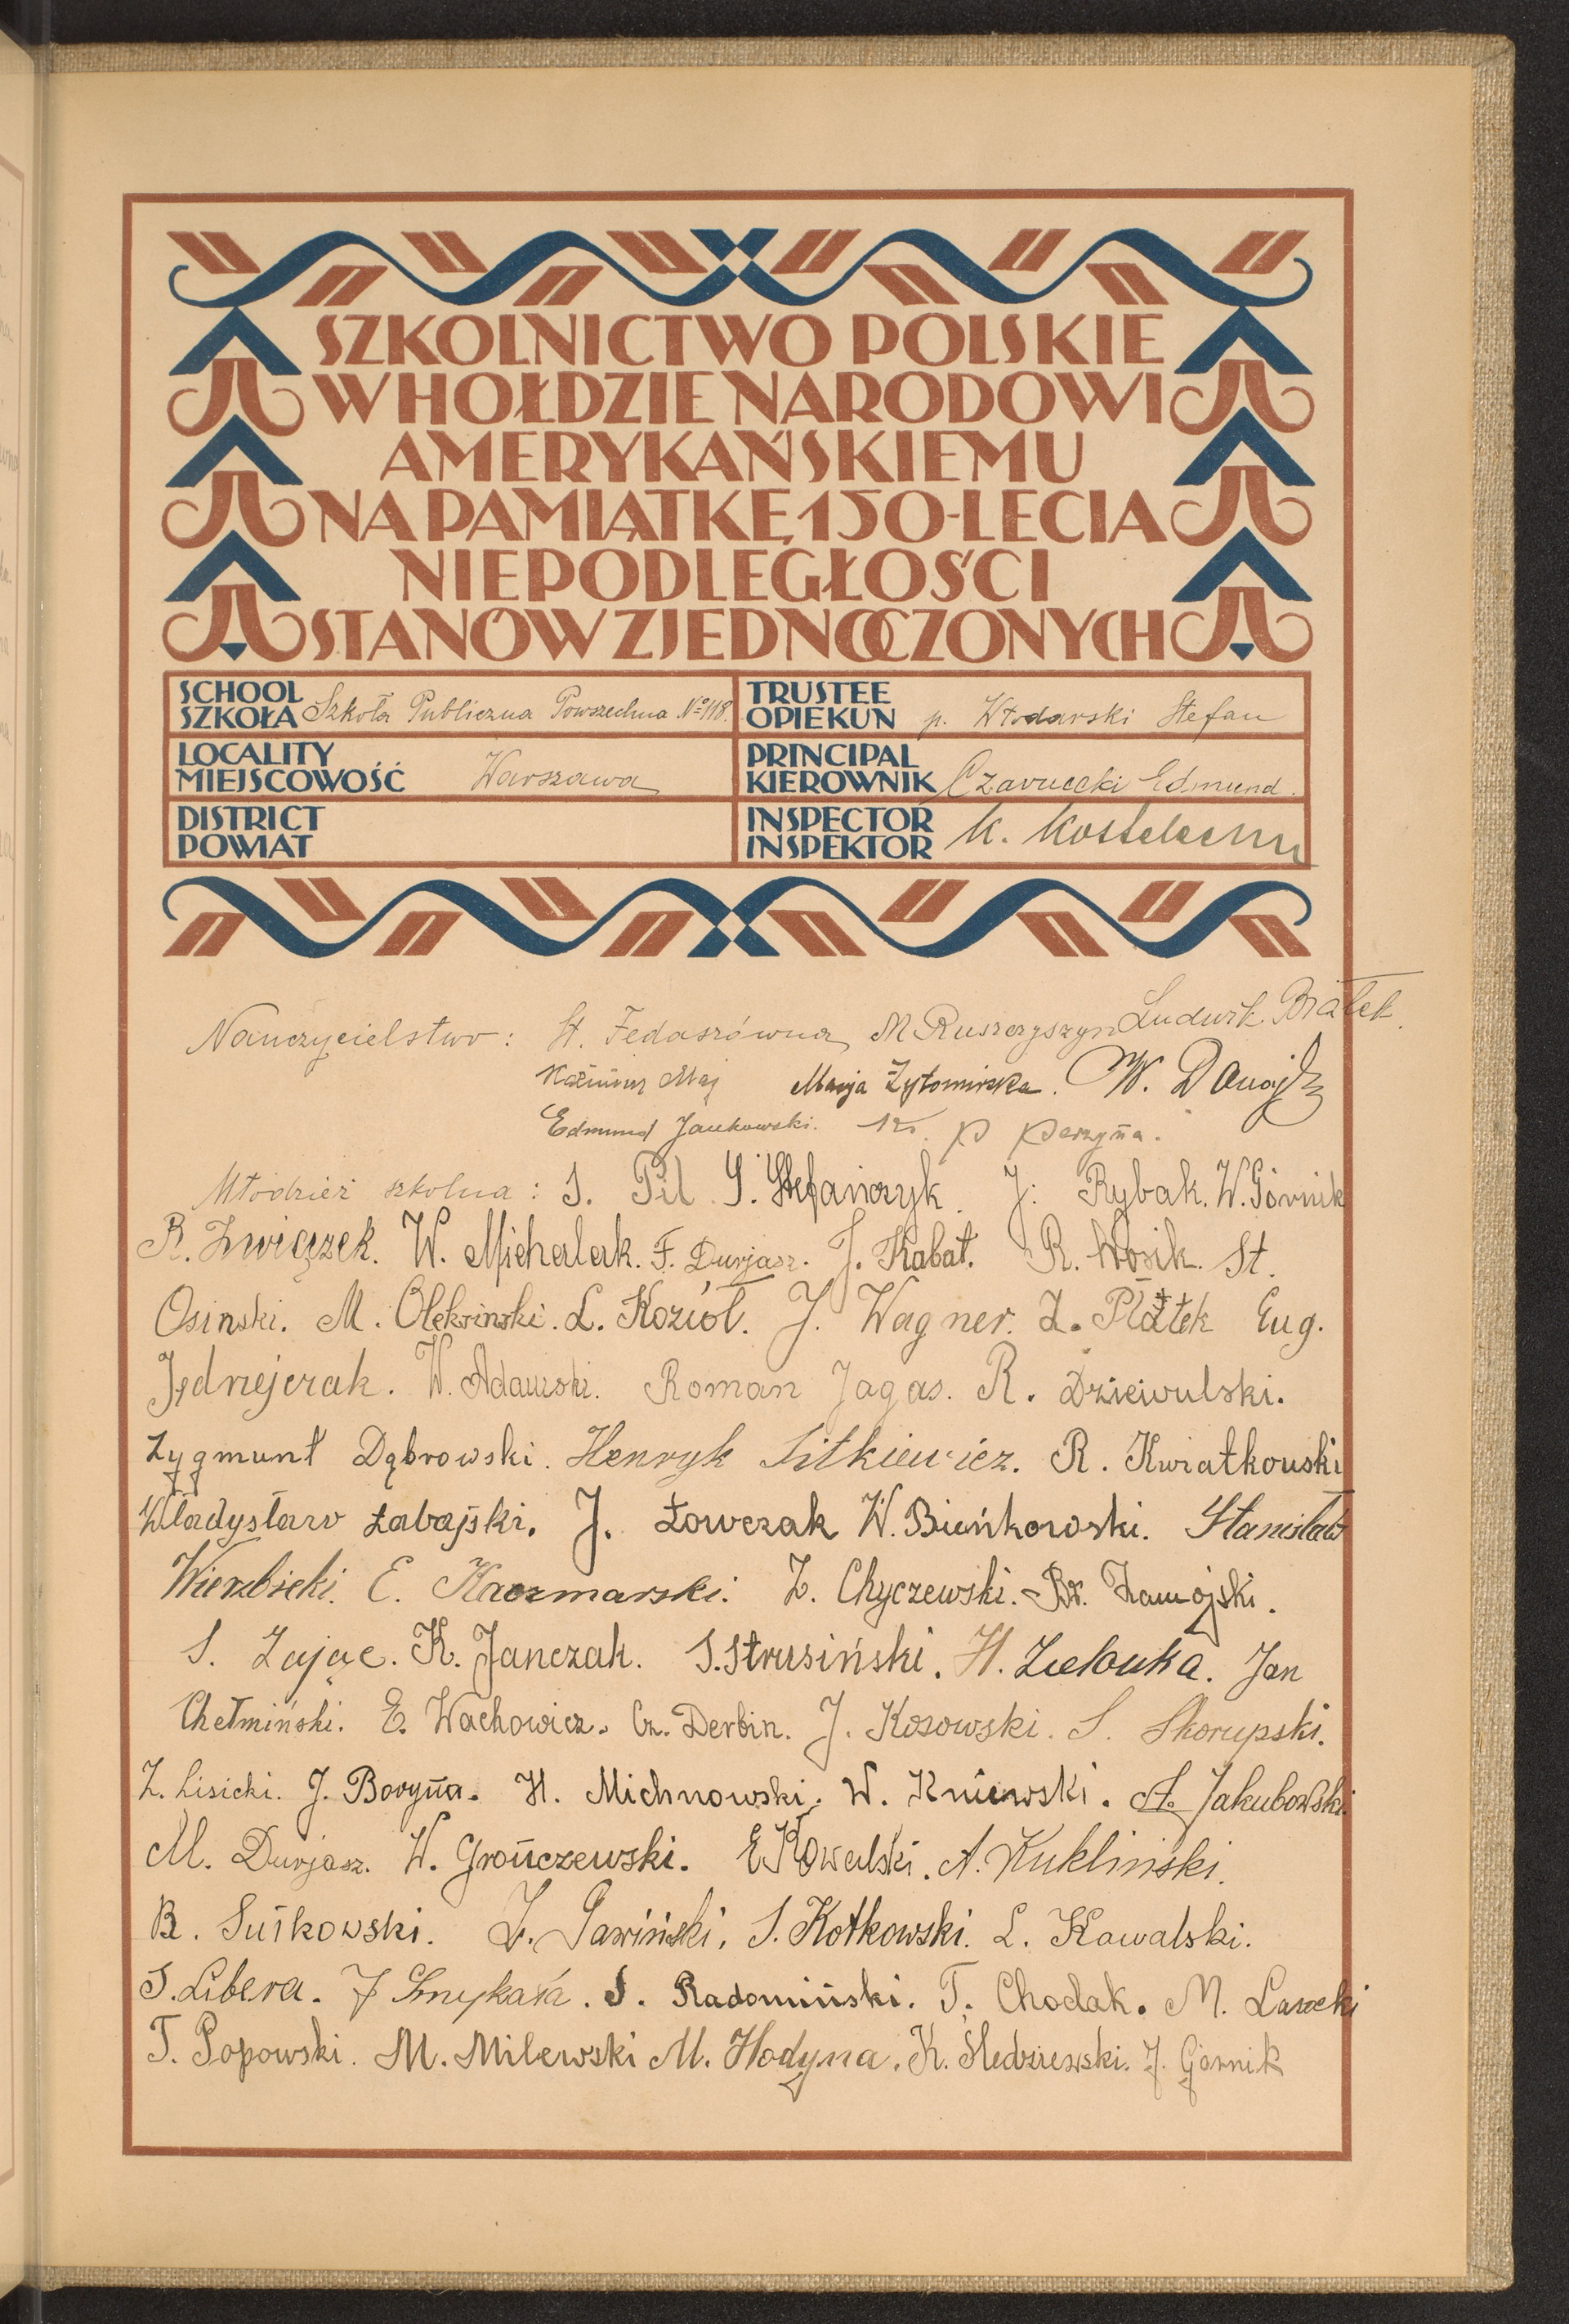 SZKOLNICTWO POLSKIE
W HOŁDZIE NARODOWI
AMERYKAŃSKIEMU
NA PAMIĄTKĘ 150-LECIA
NIEPODLEGŁOŚCI
STANÓW ZJEDNOCZONYCH
SCHOOL
SZKOŁA Szkoła Publiczna Powszechna Nº 118.
TRUSTEE
OPIEKUN p. Włodarski Stefan
LOCALITY
MIEJSCOWOŚĆ Warszawa
PRINCIPAL
KIEROWNIK Czarnecki Edmund.
DISTRICT
POWIAT
INSPECTOR
INSPEKTOR K.
Nauczycielstwo: St. Fedaszówna M Ruszczyszyn Ludwik Białek.
Kazimierz Maj Marja Żytomirska. W.
Edmund Jankowski. Ks. P Perzyna.
Młodzież szkolna: S. Pil S. Stefańczyk. J. Rybak. W. Górnik
R. Związek. W. Michalak. F. Durjasz. J. Kabat. R. Wosik. St.
Osinski. M. Olęksinski. L. Kozioł. J. Wagner. Z. Piątek Eug.
Jędrzejczak. W. Adamski. Roman Jagas. R. Dziewulski.
Zygmunt Dąbrowski. Henryk Sitkiewicz. R. Kwiatkowski
Władysław Łabajski. J. Łowczak W. Bieńkowski. Stanisław
Wierzbicki. E. Kaczmarski. Z. Chyczewski. Br. Zamojski.
S. Zając. K. Janczak. S. Strusiński. H. Zielonka. Jan
Chełmiński. E. Wachowicz. Cz. Derbin. J. Kosowski. S. Skorupski.
Z. Lisicki. J. Boryna. H. Michnowski. W. Kniewski. A. Jakubowski.
M. Durjasz. W. Grończewski. E Kowalski. A. Kukliński.
B. Sutkowski. Z. Gawiński. S. Kotkowski. L. Kowalski.
S. Libera. J Smykała. S. Radomiński. T. Chodak. M. Lasocki
T. Popowski. M. Milewski M. Hodyna. K. Śledziewski. J. Górnik